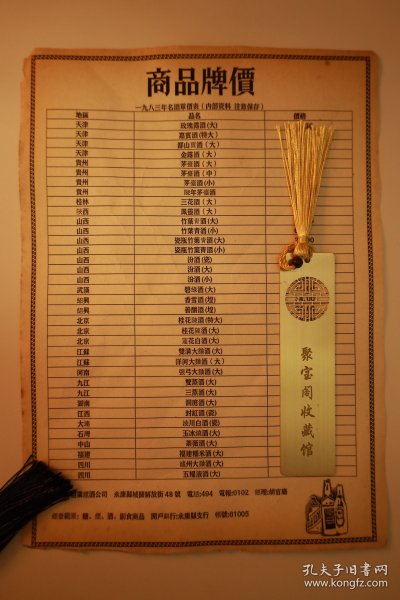 商品牌價
一九八三年名酒單價表（内部資料 注意保存）
地區 品名 價格
天津 玫瑰露酒(大)
天津 嘉賓酒(特大)
天津 都山貢酒(大)
天津 金露酒（大）
貴州 茅臺酒（大）
貴州 茅臺酒（中）
貴州 茅臺酒(小)
貴州 陳年茅臺酒
桂林 三花酒（大）
陝西 鳳靈酒（大）
山西 竹葉青酒(大)
山西 竹葉青酒(小)
山西 瓷瓶竹葉青酒(大)
山西 瓷瓶竹葉青酒(小)
山西 汾酒(瓷)
山西 汾酒(大)
山西 汾酒(小)
武漢 碧綠酒(大)
紹興 香雪酒(壇)
紹興 善釀酒(壇)
北京 桂花陳酒(特大)
北京 桂花陳酒(大)
北京 蓮花白酒(大)
江蘇 雙溝大麯酒(大)
江蘇 洋河大麯酒（大）
河南 張弓大麯酒(大)
九江 雙蒸酒(大)
九江 三蒸酒(大)
湖南 洞庭酒(大)
江西 封缸酒(瓷)
白酒(瓷)
石灣 玉冰燒酒(大)
中山 茶薇酒(大)
福建 福建糯米酒(大)
四川 瀘州大麯酒(大)
四川 五糧液酒(大)
酒公司 永康縣城關解放街48號 電話:494 電報:0102 經理:胡官廟
經營範圍：糖、煙、酒、副食商品 開戶銀行:永康縣支行 帳號:61005
聚宝阁收藏馆
孔夫子旧书网
www.kongfz.com